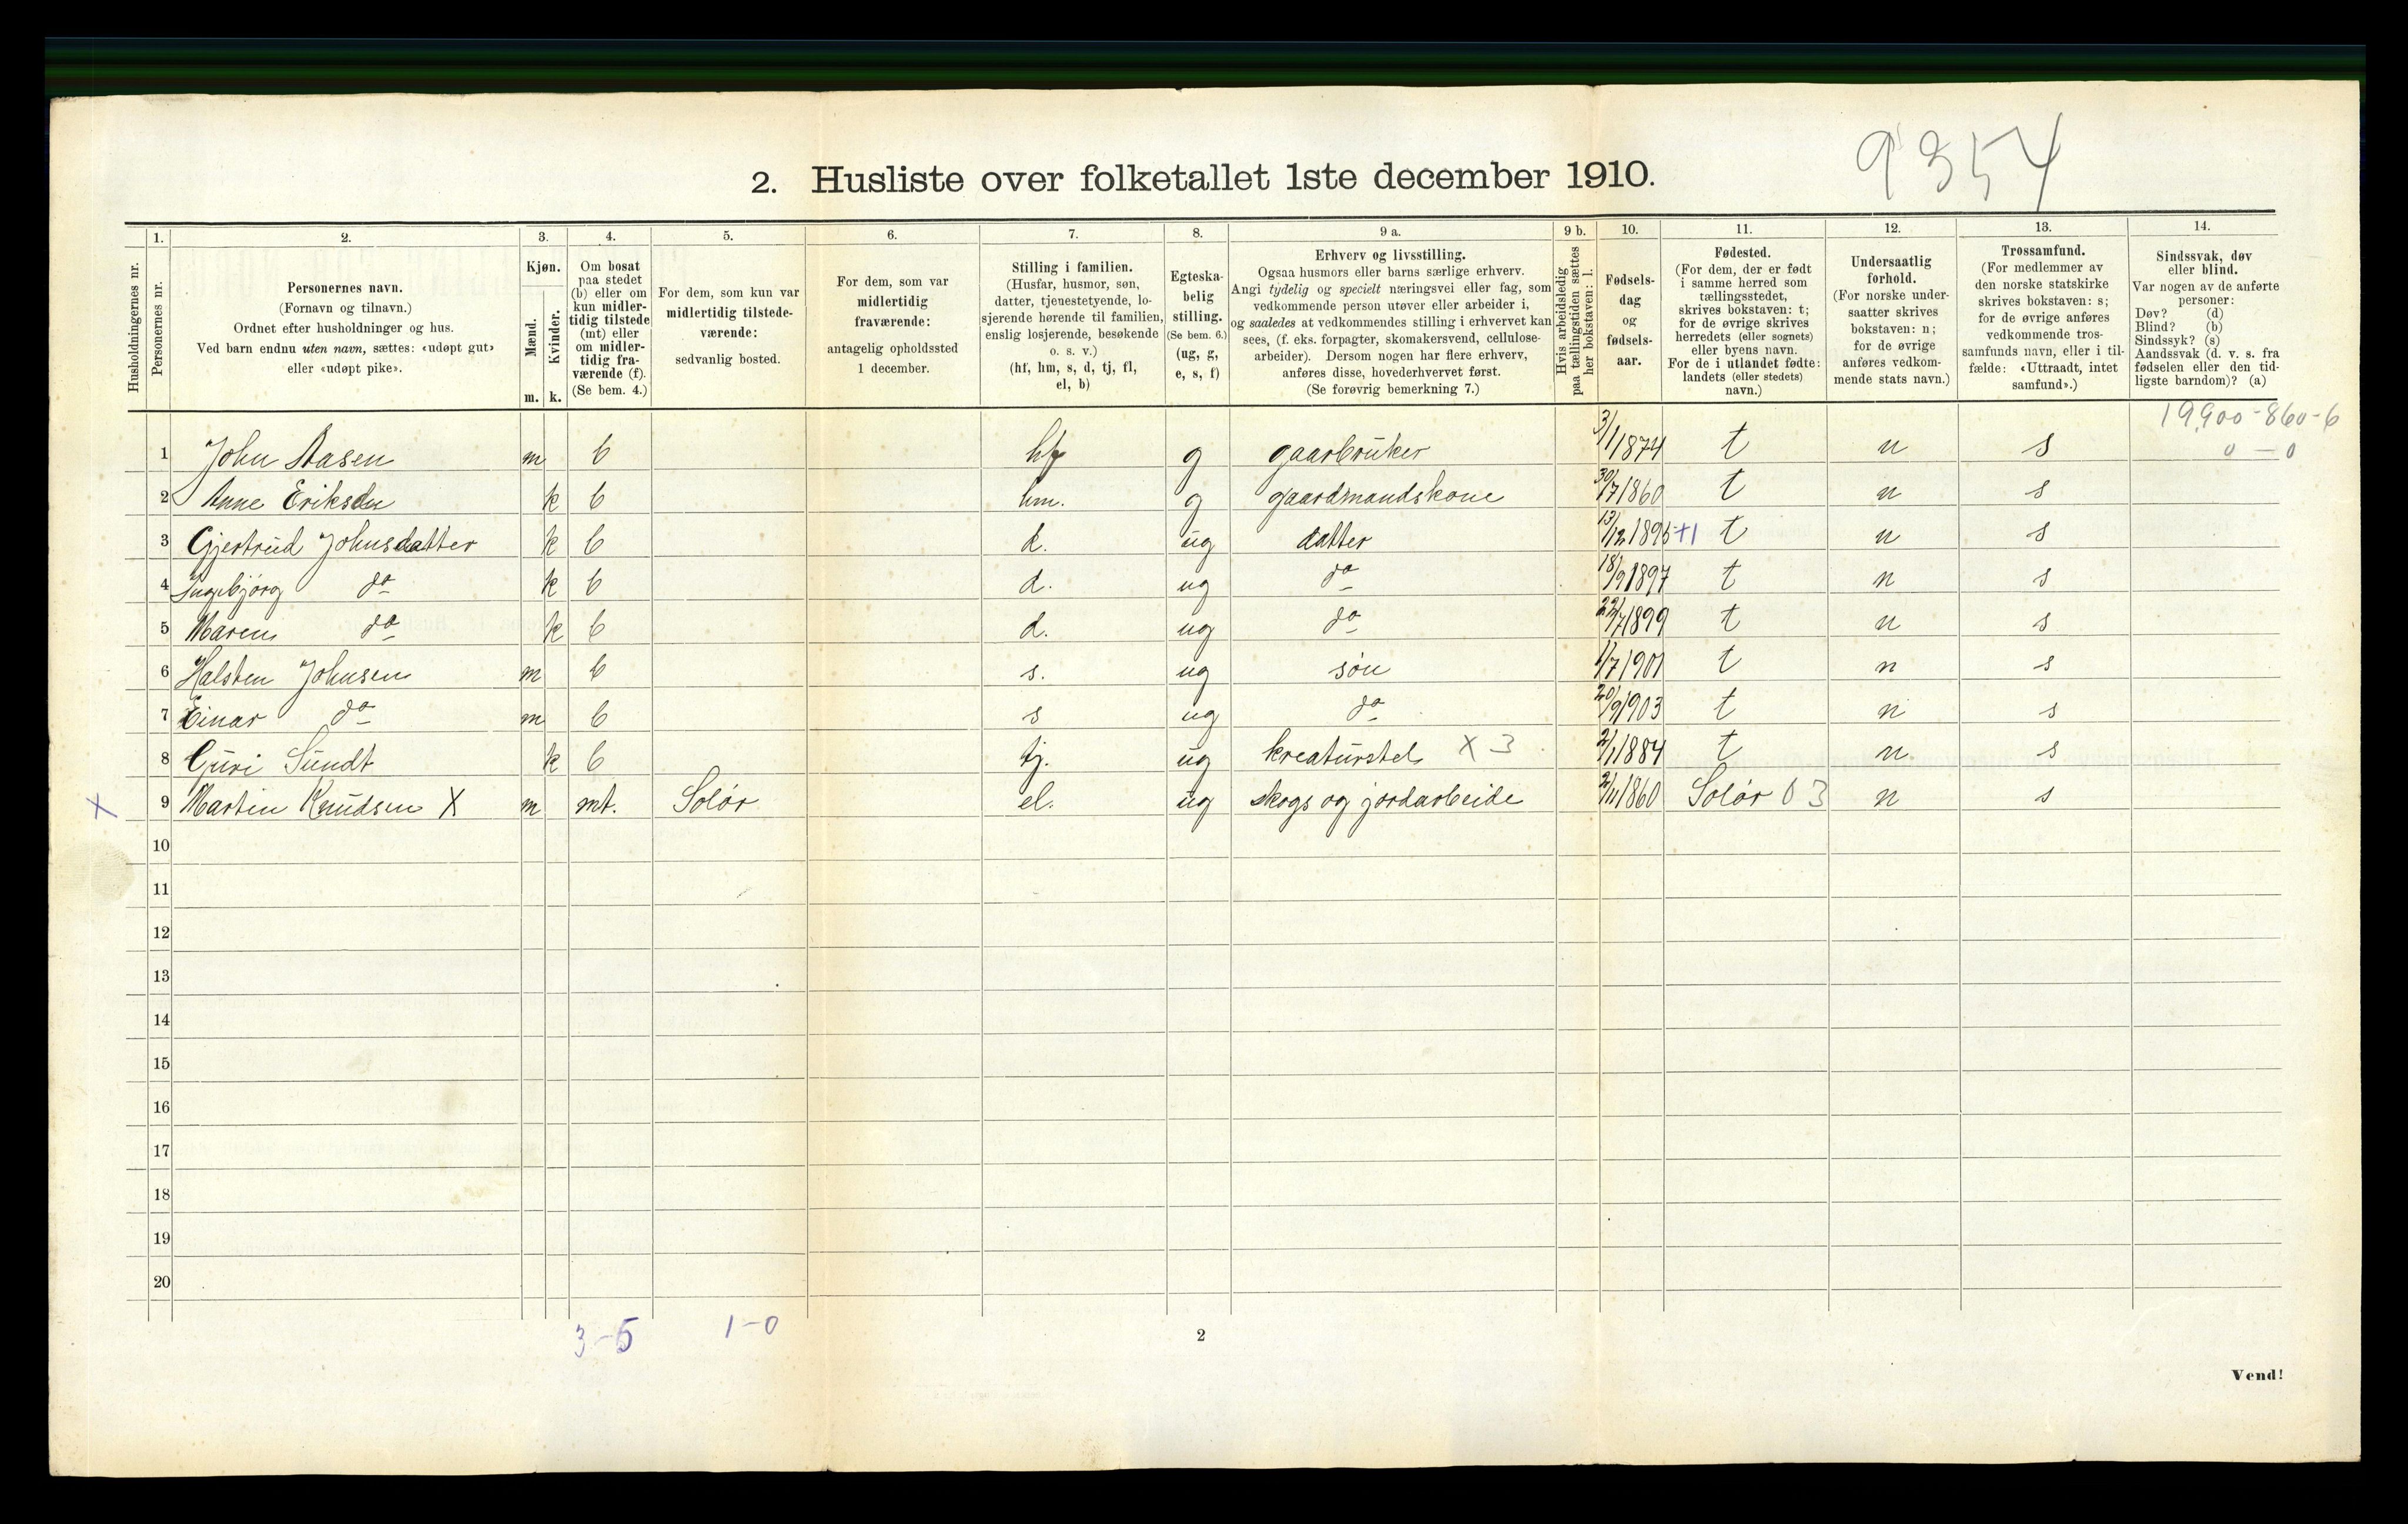 9354
2. Husliste over folketallet 1ste december 1910.
Husholdningernes nr.
1.
Personernes nr.
2.
Personernes navn.
(Fornavn og tilnavn.)
Ordnet efter husholdninger og hus.
Ved barn endnu uten navn, sættes: «udøpt gut»
eller «udøpt pike».
3.
Kjøn.
Mænd.
Kvinder.
m. k.
4.
Om bosat
paa stedet
(b) eller om
kun midler-
tidig tilstede
(mt) eller
om midler-
tidig fra-
værende (f).
(Se bem. 4.)
5.
For dem, som kun var
midlertidig tilstede-
værende:
sedvanlig bosted.
6.
For dem, som var
midlertidig
fraværende:
antagelig opholdssted
1 december.
7.
Stilling i familien.
(Husfar, husmor, søn,
datter, tjenestetyende, lo-
sjerende hørende til familien,
enslig losjerende, besøkende
o. s. v.)
(hf, hm, s, d, tj, fl,
el, b)
8.
Egteska-
belig
stilling.
(Se bem. 6.)
(ug, g,
e, s, f)
9 a.
Erhverv og livsstilling.
Ogsaa husmors eller barns særlige erhverv.
Angi tydelig og specielt næringsvei eller fag, som
vedkommende person utøver eller arbeider i,
og saaledes at vedkommendes stilling i erhvervet kan
sees, (f. eks. forpagter, skomakersvend, cellulose-
arbeider). Dersom nogen har flere erhverv,
anføres disse, hovederhvervet først.
(Se forøvrig bemerkning 7.)
9 b.
Hvis arbeidsledig
paa tællingstiden sættes
her bokstaven: l.
10.
Fødsels-
dag
og
fødsels-
aar.
11.
Fødested.
(For dem, der er født
i samme herred som
tællingsstedet,
skrives bokstaven: t;
for de øvrige skrives
herredets (eller sognets)
eller byens navn.
For de i utlandet fødte:
landets (eller stedets)
navn.)
12.
Undersaatlig
forhold.
(For norske under-
saatter skrives
bokstaven: n;
for de øvrige
anføres vedkom-
mende stats navn.)
13.
Trossamfund.
(For medlemmer av
den norske statskirke
skrives bokstaven: s;
for de øvrige anføres
vedkommende tros-
samfunds navn, eller i til-
fælde: «Uttraadt, intet
samfund».)
14.
Sindssvak, døv
eller blind.
Var nogen av de anførte
personer:
Døv? (d)
Blind? (b)
Sindssyk? (s)
Aandssvak (d. v. s. fra
fødselen eller den tid-
ligste barndom)? (a)
19,900-860-6
0 - 0
1 John Aasen m b hf g gaarbruker 3/1 1874 t n s
2 Anne Eriksdn k b hm. g gaardmandskone 30/7 1860 t n s
3 Gjertrud Johnsdatter k b d. ug datter 13/12 1895 +1 t n s
4 Ingebjørg do k b d. ug do 18/9 1897 t n s
5 Maren do k b d. ug do 22/7 1899 t n s
6 Halsten Johnsen m b s. ug søn 11/7 1901 t n s
7 Einar do m b s ug do 20/9 1903 t n s
8 Guri Sundt k b tj. ug kreaturstel X 3 2/1 1884 t n s
X 9 Martin Knudsen X m mt. Solør el. ug skogs og jordarbeide 2/11 1860 Solør 0 3 n s
10
11
12
13
14
15
16
17
18
19
20
3-5 1-0
2
Vend!